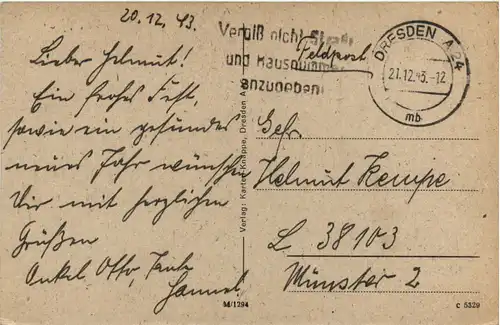 20.12.43.
Lieber Helmut!
Ein frohes Fest,
sowie ein gesundes
neues Jahr wünschen
Dir mit herzlichen
Grüßen
Onkel Otto, Tante
Hannel.
Vergiß nicht Straße
und Hausnummer
anzugeben
Feldpost
DRESDEN A 24
21.12.43.-12
mb
Gefr.
Helmut Kempe
L 38103
Münster 2
Verlag: Karten-Knappe, Dresden A
M/1294
C 5329